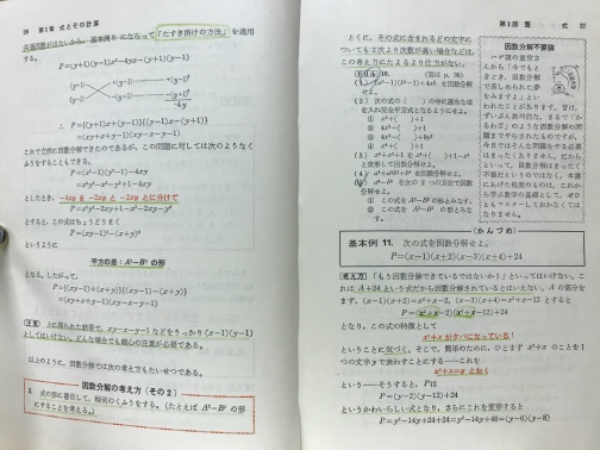 26 第1章 式とその計算
共通因数がないから，基本例9. にならって「たすき掛けの方法」を適用
する。
P=(y+1)(y-1)x²-4yx-(y+1)(y-1)
(y+1) +(y-1) +(y-1)²
(y-1) -(y+1) -(y+1)²
-4y
∴ P={(y+1)x+(y-1)}{(y-1)x-(y+1)}
=(xy+x+y-1)(xy-x-y-1)
これで立派に因数分解できたのであるが，この問題に対しては次のようなく
ふうをすることもできる。
P=(x²-1)(y²-1)-4xy
=x²y²-x²-y²+1-4xy
としたとき，-4xy を -2xy と -2xy とに分けて
P=x²y²-2xy+1-x²-2xy-y²
とすると，この式はちょうどうまく
P=(xy-1)²-(x+y)²
というように
平方の差：A²-B² の形
となる。したがって，
P={(xy-1)+(x+y)}{(xy-1)-(x+y)}
=(xy+x+y-1)(xy-x-y-1)
注意 上に得られた結果で，xy-x-y-1 などをうっかり(x-1)(y-1)
としてはいけない。どんな場合でも細心の注意が必要である。
以上のように，因数分解では次の考え方もたいせつである。
因数分解の考え方（その2）
式の形に着目して，特別のくふうをする。（たとえば A²-B² の形
にすることを考える。）
第1章 整 式
とくに，その式に含まれるどの文字に
ついても2次より次数が高い場合などは，
この考え方にたよるより仕方がない。
10. (答は p. 30)
を因数分解
せよ。
(2) 次の式の( )の中に適当な項
を入れ完全平方式となるようにせよ。
① x⁴+( )+1
② 4x⁴-( )+1
③ x⁴+( )+4
④ 4x⁴-( )+9
(3) x⁴+x²+1 を x⁴+( )+1-x²
と変形して因数分解せよ。
を因数分解せよ。
(5) a⁶-b⁶ を次の2つの方法で因数
分解せよ。
① この式を A²-B² の形とみなす。
② この式を A³-B³ の形とみな
す。
因数分解不要論
ハゲ頭の重役さ
んから「今でもと
きどき，因数分解
で苦しめられた夢
をみますよ」とい
われたことがあります。昔は，
ずいぶん技巧的な，まるで「か
るわざ」のような因数分解の問
題までやらされたものですが，
今日ではそんな問題をやる必要
はまったくありません。だから
といって，因数分解はまったく
不要だというのではなく，本書
にあげた程度のものは，これか
ら学ぶ数学の基礎として，ぜひ
ともマスターしておかなくては
なりません。
（かんづめ）
基本例 11. 次の式を因数分解せよ。
P=(x-1)(x+2)(x-3)(x+4)+24
考え方 「もう因数分解できているではないか！」といってはいけない。こ
れは A+24 という式だから因数分解されていないといえない。A の部分を
ます，(x-1)(x+2)=x²+x-2, (x-3)(x+4)=x²+x-12 とすると
P=(x²+x-2)(x²+x-12)+24
となり，この式の特徴として
x²+x がタバになっている！
ということに気づく。そこで，簡単のために，ひとまず x²+x のことを1
つの文字 y で表わすことにする——これを
x²+x=y とおく
という——そうすると，P は
P=(y-2)(y-12)+24
というかわいらしい式となり，さらにこれを変形すると
P=y²-14y+24+24=y²-14y+48=(y-6)(y-8)